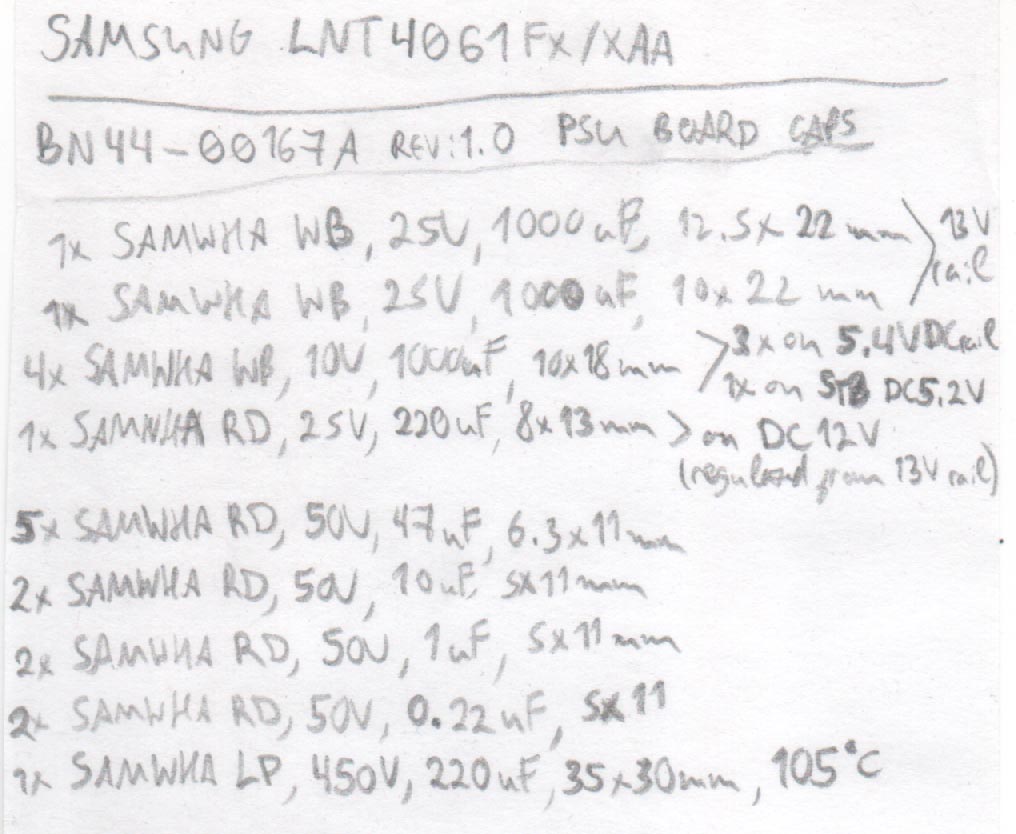 SAMSUNG LNT4061FX/XAA
BN44-00167A REV:1.0 PSU BOARD CAPS
1x SAMWHA WB, 25V, 1000uF, 12.5x22mm > 13V rail
1x SAMWHA WB, 25V, 1000uF, 10x22mm
4x SAMWHA WB, 10V, 1000uF, 10x18mm > 3x on 5.4VDC rail
1x on STB DC5.2V
1x SAMWHA RD, 25V, 220uF, 8x13mm > on DC12V
(regulated from 13V rail)
5x SAMWHA RD, 50V, 47uF, 6.3x11mm
2x SAMWHA RD, 50V, 10uF, 5x11mm
2x SAMWHA RD, 50V, 1uF, 5x11mm
2x SAMWHA RD, 50V, 0.22uF, 5x11
1x SAMWHA LP, 450V, 220uF, 35x30mm, 105°C